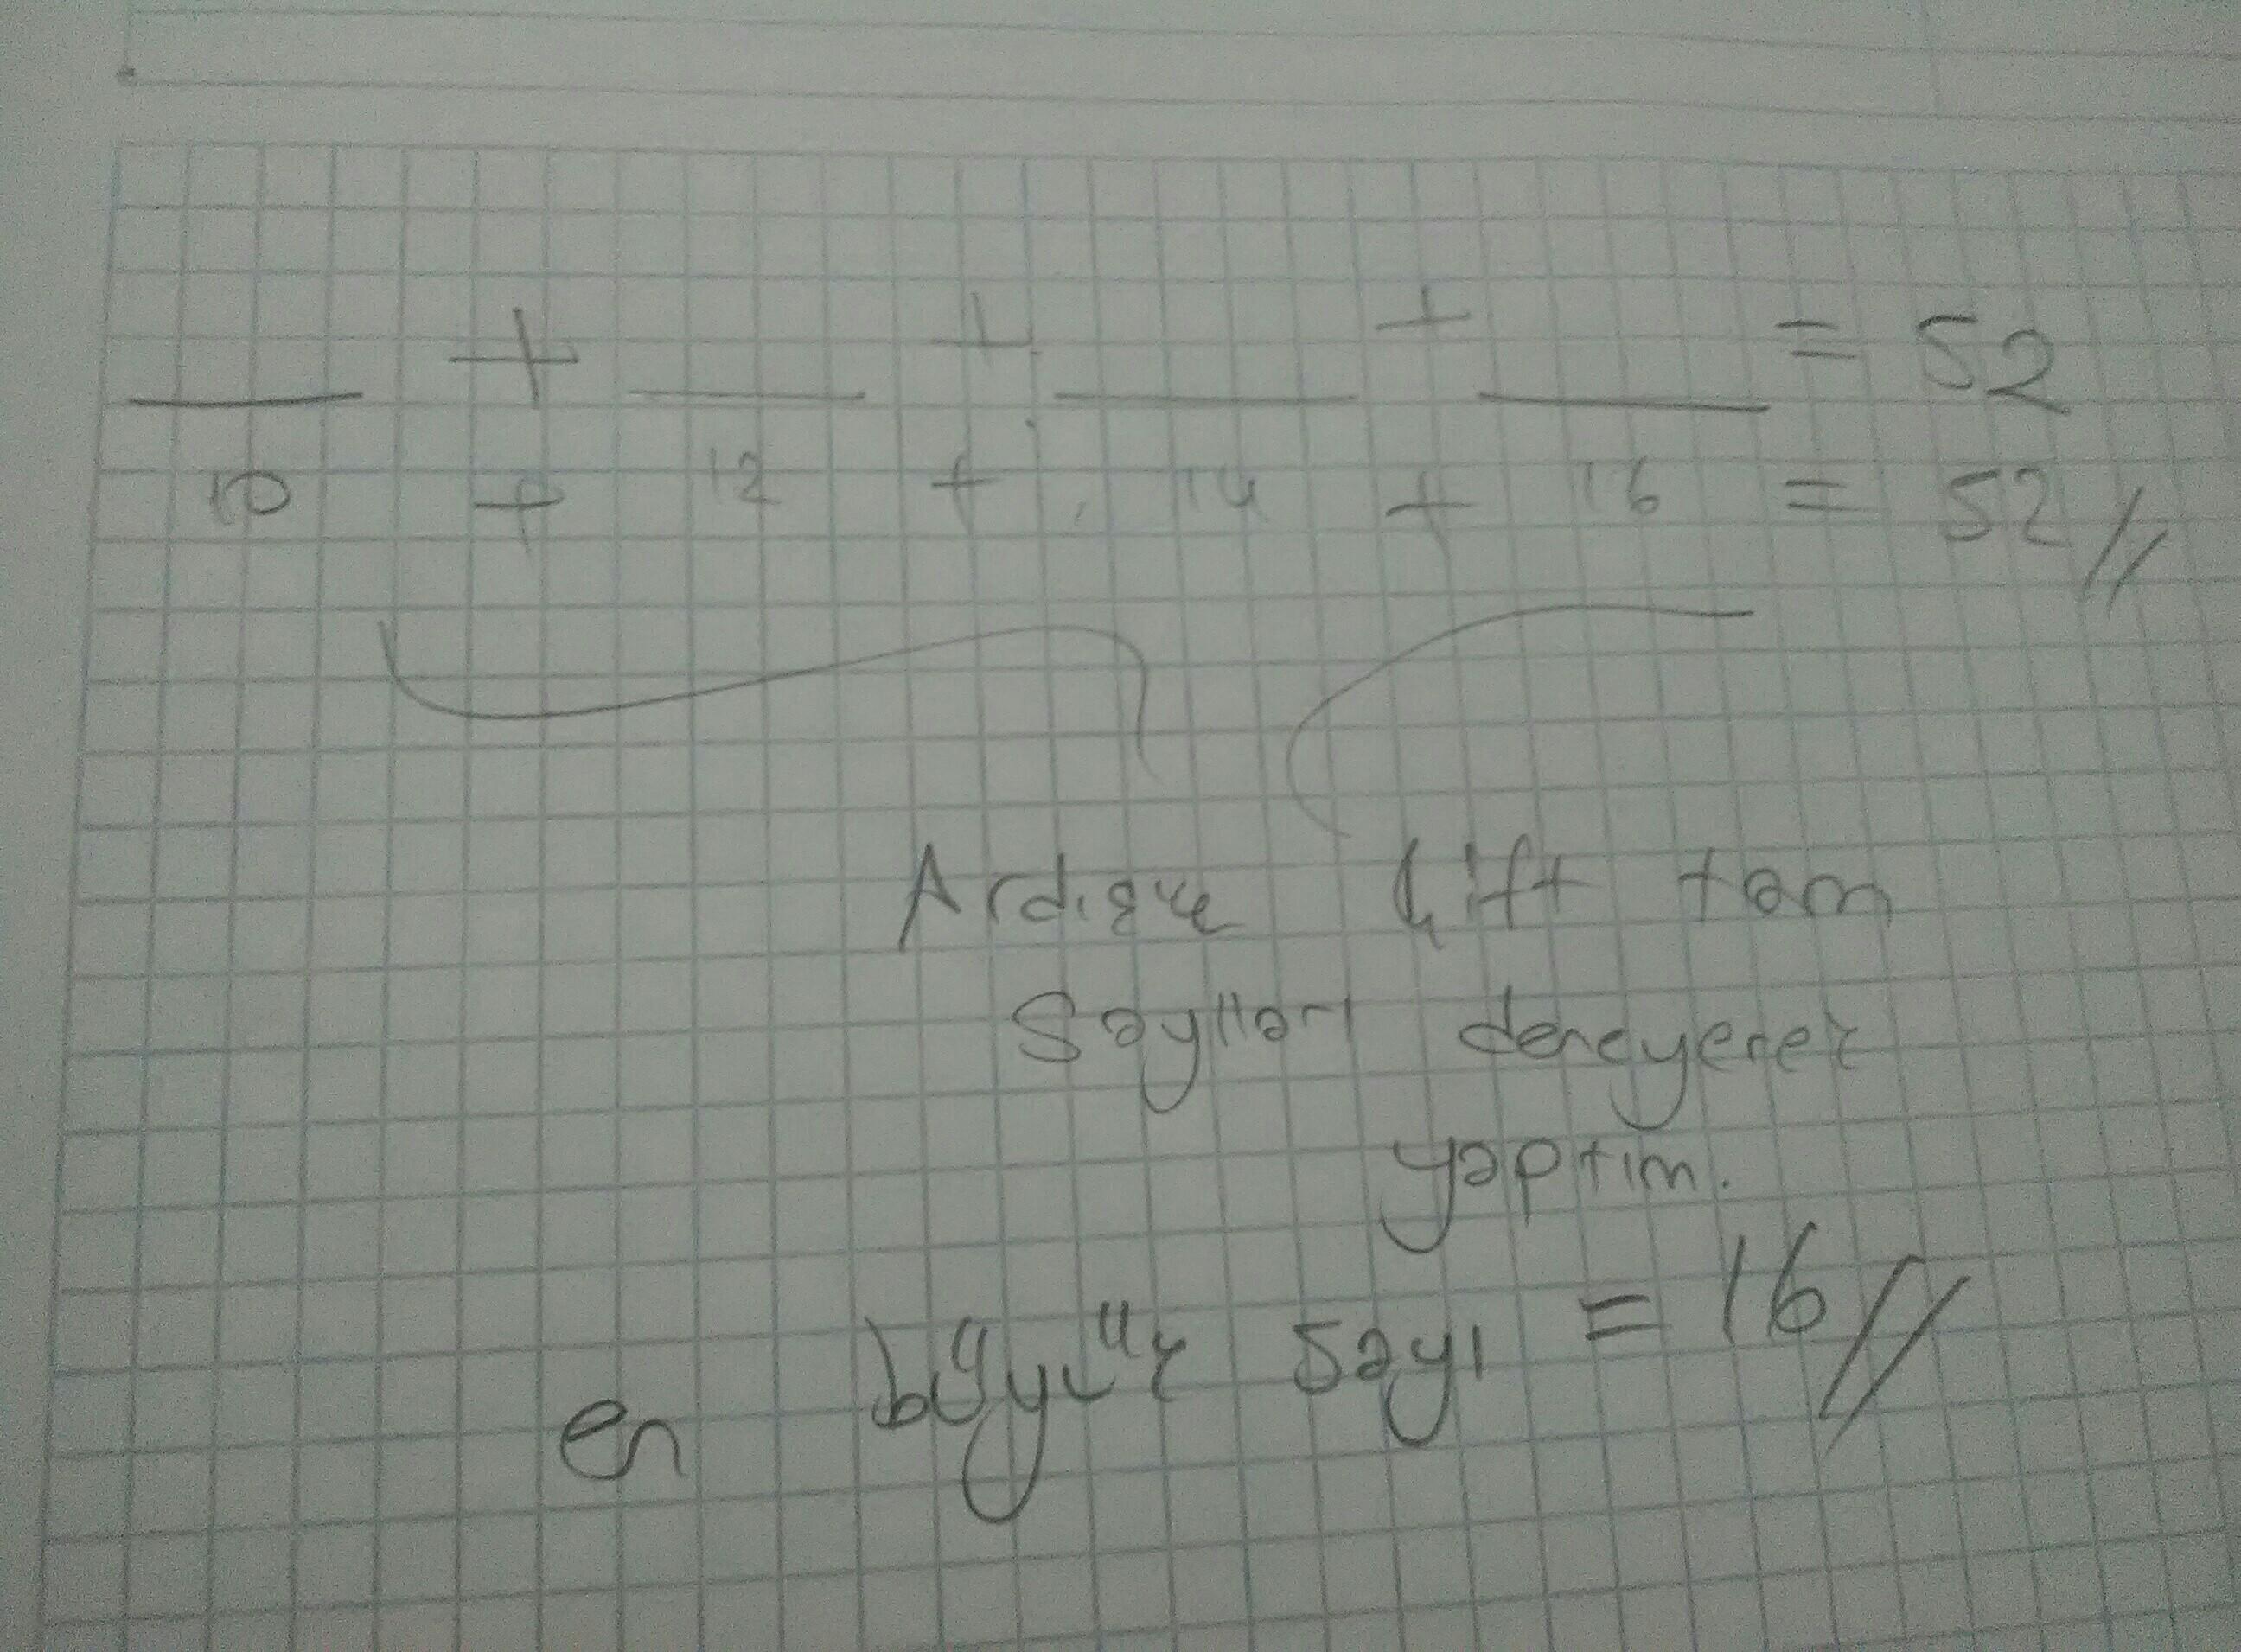 + + + = 52
10 + 12 + 14 + 16 = 52 //
Ardışık çift tam
Sayıları deneyerek
yaptım.
en büyük sayı = 16 //